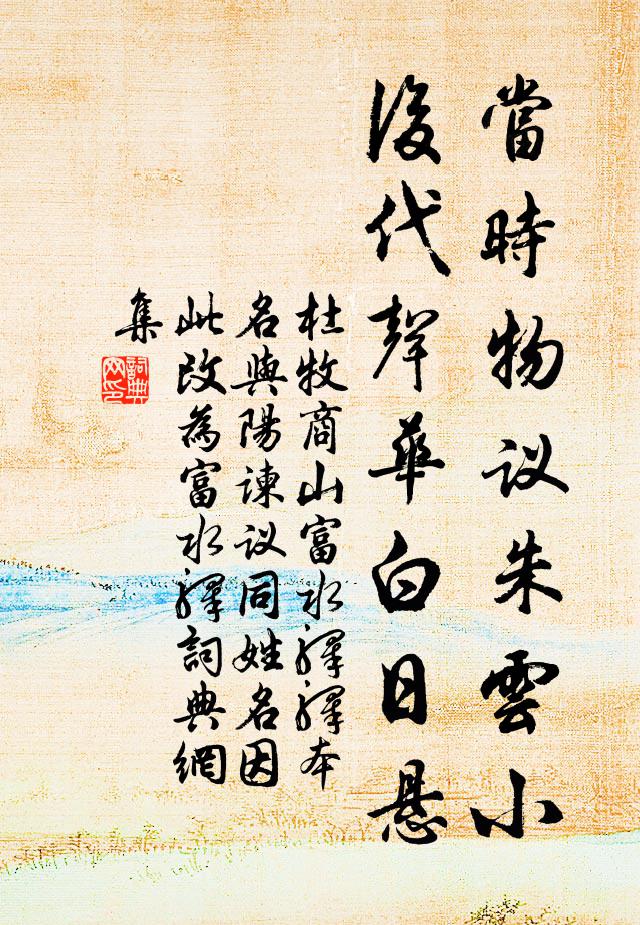 當時物议朱雲小
後代聲華白日悬
杜牧商山富水驛驛本
名與陽諫议同姓名因
此改為富水驛詞典網
集
詞典
网印